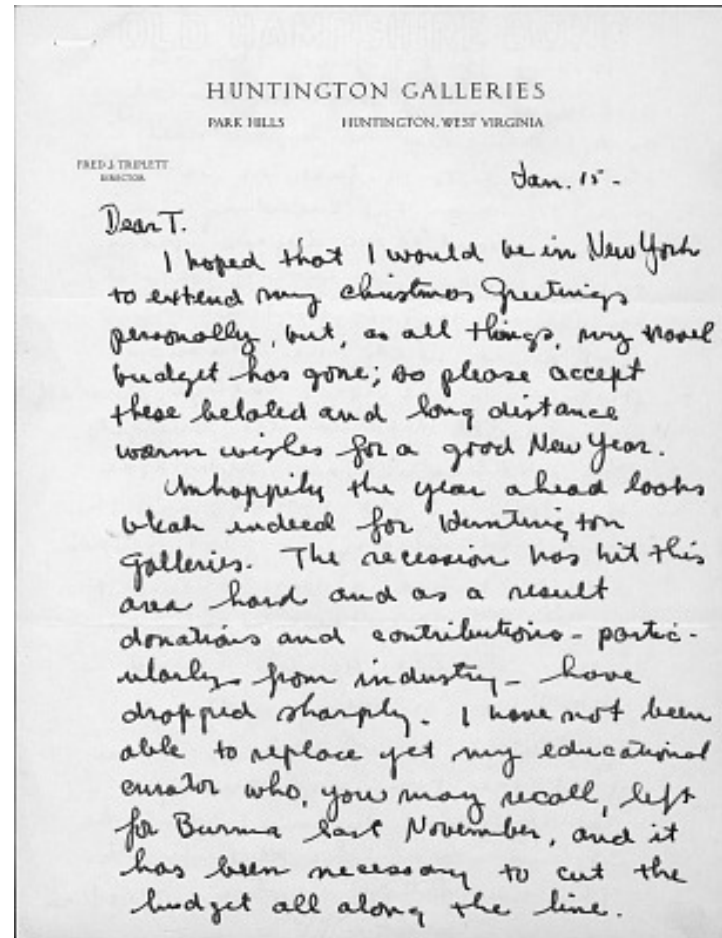 HUNTINGTON GALLERIES
PARK HILLS HUNTINGTON, WEST VIRGINIA
FRED J. TRIPLETT
DIRECTOR
Jan. 15 -
Dear T.
I hoped that I would be in New York
to extend my Christmas Greetings
personally, but, as all things, my travel
budget has gone; so please accept
these belated and long distance
warm wishes for a good New Year.
Unhappily the year ahead looks
bleak indeed for Huntington
Galleries. The recession has hit this
area hard and as a result
donations and contributions - partic-
ularly from industry - have
dropped sharply. I have not been
able to replace yet my educational
curator who, you may recall, left
for Burma last November, and it
has been necessary to cut the
budget all along the line.